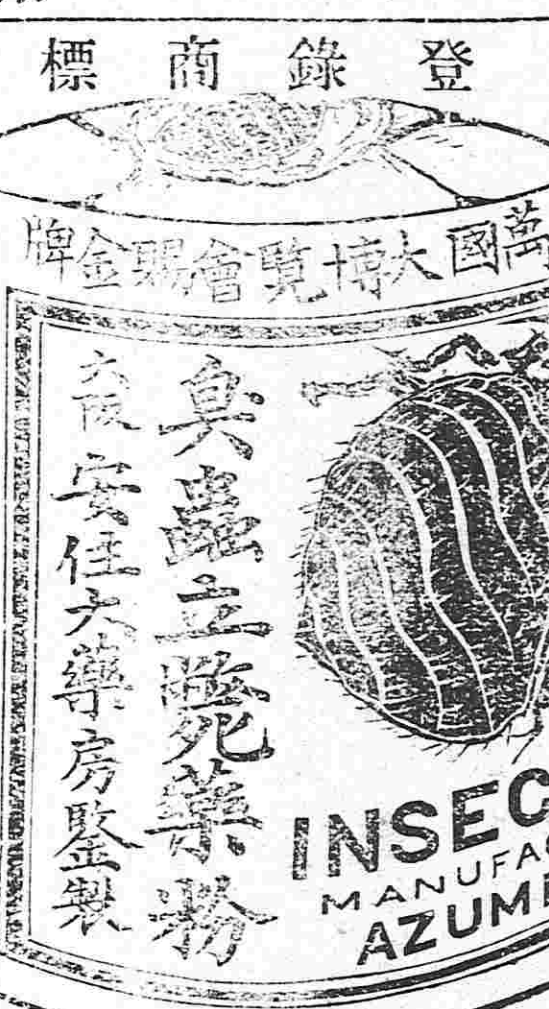 登錄商標
萬國大博覽會賜金牌
臭蟲立斃藥粉
大阪安住大藥房鋻製
INSEC
MANUFA
AZUM